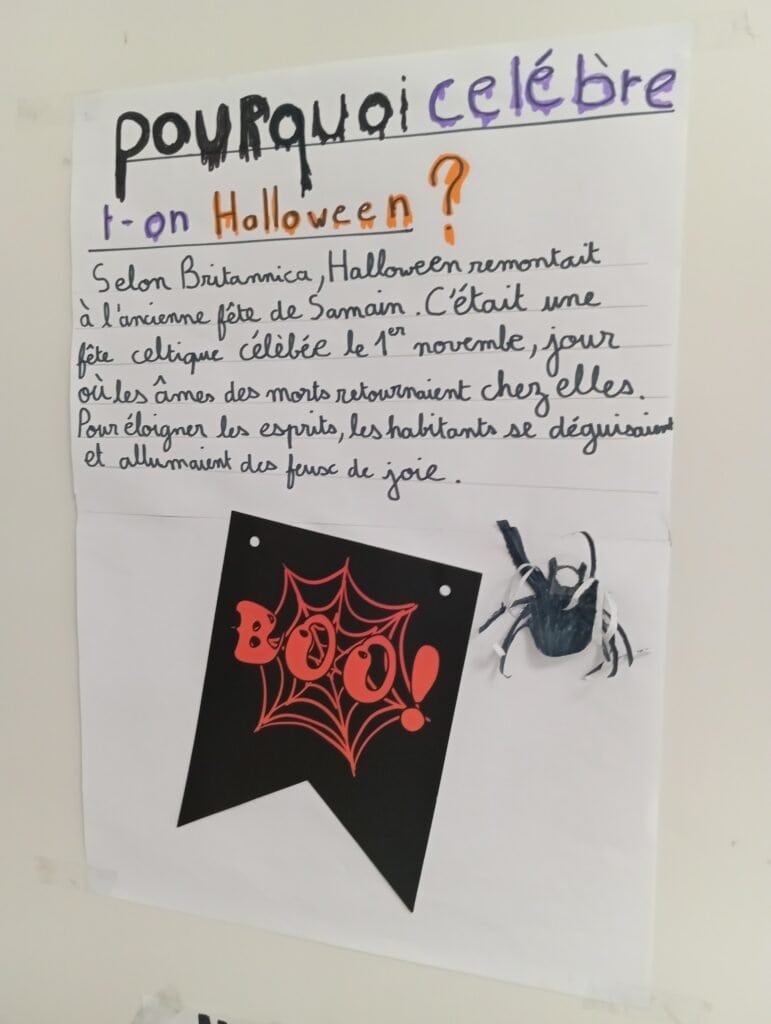 Pourquoi celébre
t-on Halloween ?
Selon Britannica, Halloween remontait
à l'ancienne fête de Samain. C'était une
fête celtique célèbée le 1er novembe, jour
où les âmes des morts retournaient chez elles.
Pour éloigner les esprits, les habitants se déguisaient
et allumaient des feux de joie.
BOO!